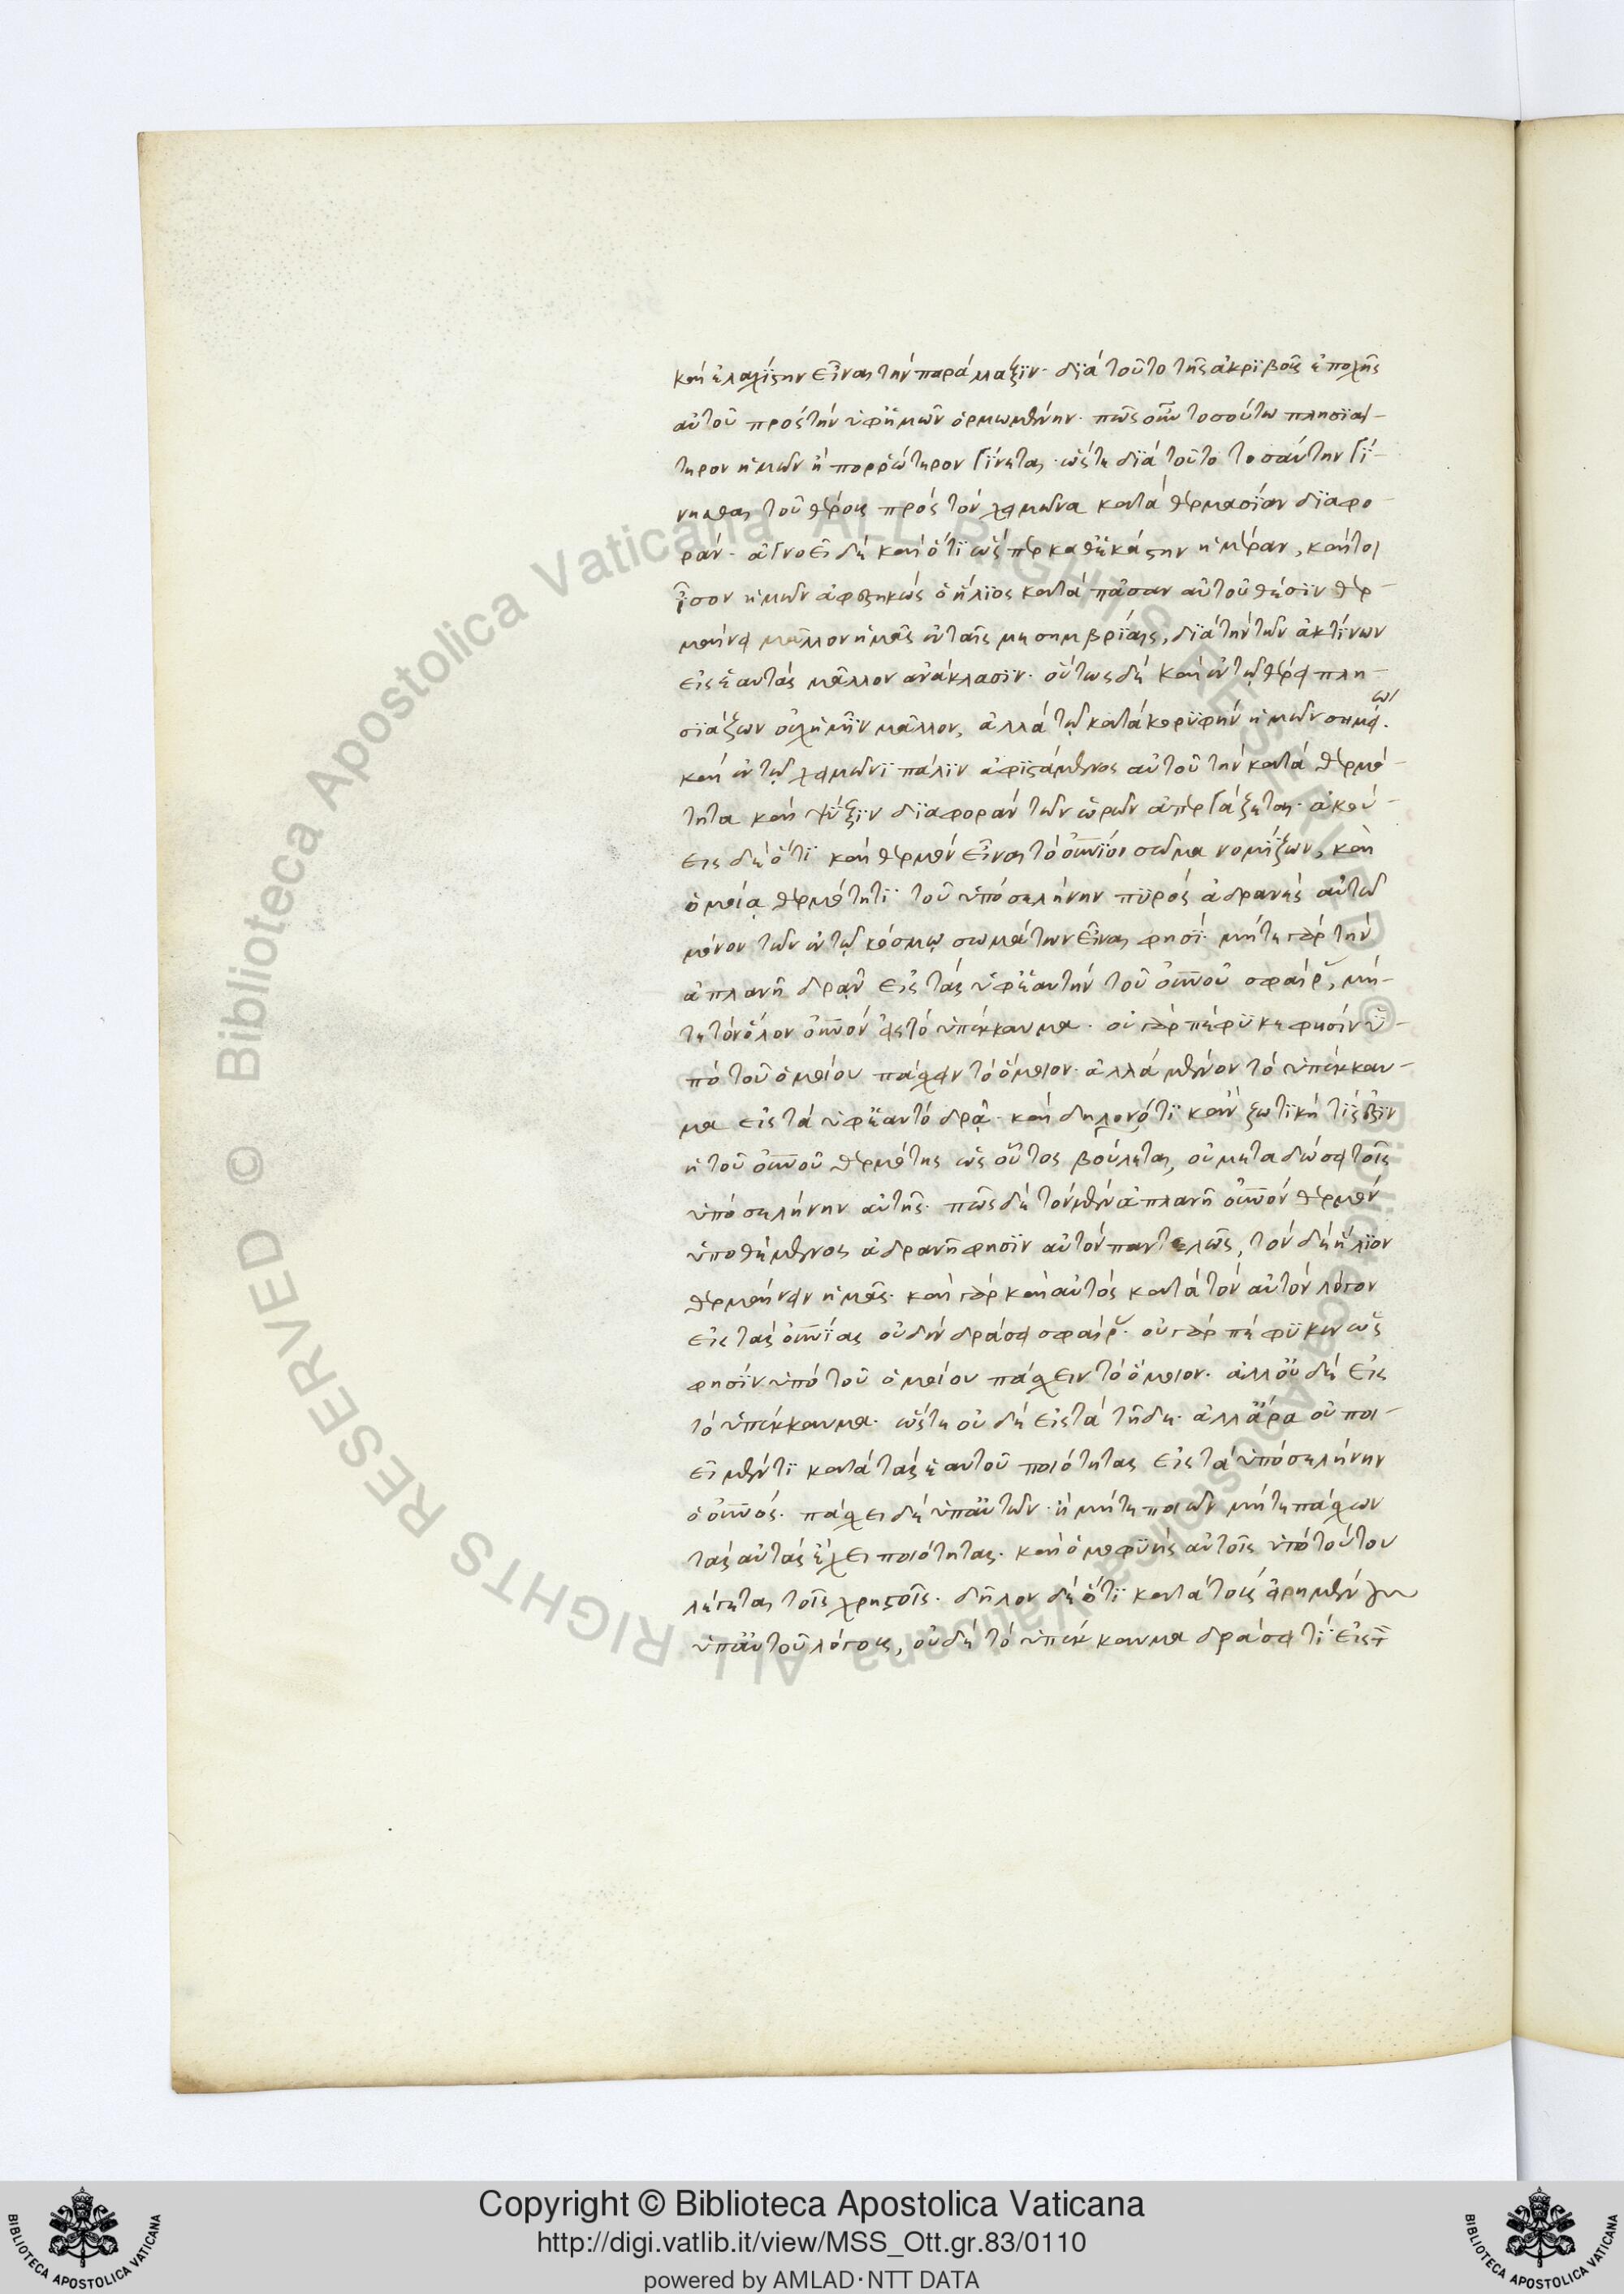 καὶ ἐλαχίστην εἶναι τὴν παράλλαξιν· διὰ τοῦτο τῆς ἀκριβοῦς ἐποχῆς
αὐτοῦ πρὸς τὴν ὑφ' ἡμῶν ὁρμωμένην· πῶς οὖν τοσούτω πλησιαί-
τερον ἡμῶν ἢ πορρώτερον γίνεται· ὥστε διὰ τοῦτο τοσαύτην γί-
νεσθαι τοῦ θέρους πρὸς τὸν χειμῶνα κατὰ θερμασίαν διαφο-
ράν· ἀγνοεῖ δὲ καὶ ὅτι ὥσπερ καθ' ἑκάστην ἡμέραν, καίτοι
ἴσον ἡμῶν ἀφεστηκὼς ὁ ἥλιος κατὰ πᾶσαν αὐτοῦ θέσιν θερ-
μαίνει μᾶλλον ἡμᾶς ἐν ταῖς μεσημβρίαις, διὰ τὴν τῶν ἀκτίνων
εἰς ἑαυτὰς μᾶλλον ἀνάκλασιν· οὕτως δὲ καὶ ἐν τῷ θέρει πλη-
σιάζων οὐχ ἡμῖν μᾶλλον, ἀλλὰ τῷ κατὰ κορυφὴν ἡμῶν σημείωι·
καὶ ἐν τῷ χειμῶνι πάλιν ἀφιστάμενος αὐτοῦ τὴν κατὰ θερμό-
τητα καὶ ψύξιν διαφορὰν τῶν ὡρῶν ἀπεργάζεται· ἀκού-
εις δὲ ὅτι καὶ θερμὸν εἶναι τὸ οὐνιον σῶμα νομίζων, καὶ
ὁμοίᾳ θερμότητι τοῦ ὑπὸ σελήνην πυρὸς ἀδρανὲς αὐτῶ
μόνον τῶν ἐν τῷ κόσμῳ σωμάτων εἶναι φησί· μήτε γὰρ τὴν
ἀπλανῆ δρᾷν εἰς τὰς ὑφ' ἑαυτὴν τοῦ οὐνοῦ σφαίρας, μή-
τε τὸν ὅλον οὐνὸν εἰς τὸ ὑπέκκαυμα· οὐ γὰρ πέφυκε φησὶν ὑ-
πὸ τοῦ ὁμοίου πάσχειν τὸ ὅμοιον· ἀλλὰ μόνον τὸ ὑπέκκαυ-
μα εἰς τὰ ὑφ' ἑαυτὸ δρᾷ· καὶ δηλονότι κἂν ζωτική τίς ἐστιν
ἡ τοῦ οὐνοῦ θερμότης ὡς οὗτος βούλεται, οὐ μεταδώσει τοῖς
ὑπὸ σελήνην αὐτῆς· πῶς δὲ τὸν μὲν ἀπλανῆ οὐνὸν θερμὸν
ὑποθέμενος ἀδρανῆ φησιν αὐτὸν παντελῶς, τὸν δὲ ἥλιον
θερμαίνειν ἡμᾶς· καὶ γὰρ καὶ αὐτὸς κατὰ τὸν αὐτὸν λόγον
εἰς τὰς οὐνίας οὐδὲν δράσει σφαίρας· οὐ γὰρ πέφυκεν ὥς
φησιν ὑπὸ τοῦ ὁμοίου πάσχειν τὸ ὅμοιον· ἀλλ' οὐδὲ εἰς
τὸ ὑπέκκαυμα· ὥστε οὐδὲ εἰς τὰ τῆδε· ἀλλ' ἄρα οὐ ποι-
εῖ μέν τι κατὰ τὰς ἑαυτοῦ ποιότητας εἰς τὰ ὑπὸ σελήνην
ὁ οὐνός· πάσχει δὲ ὑπ' αὐτῶν· ἢ μήτε ποιῶν μήτε πάσχων
τὰς αὐτὰς ἔχει ποιότητας· καὶ ὁμοφυὴς αὐτοῖς ὑπὸ τούτου
λέγεται τοῖς χρηστοῖς· δῆλον δὲ ὅτι κατὰ τοὺς εἰρημένους
ὑπ' αὐτοῦ λόγους, οὐδὲ τὸ ὑπέκκαυμα δράσει τί εἰς τ